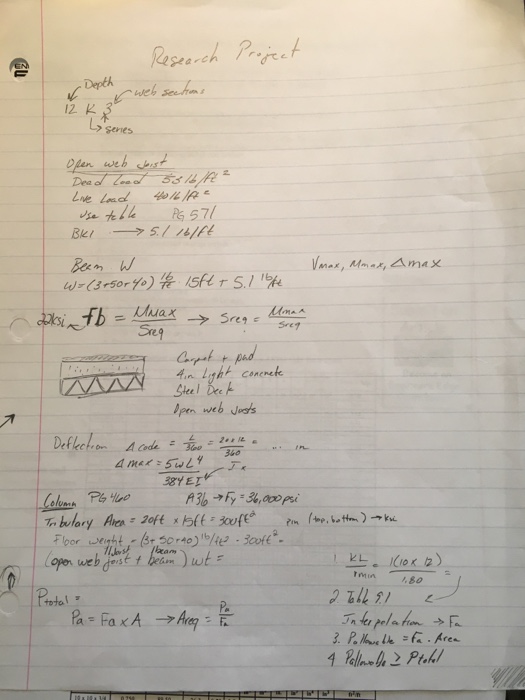 Research Project
Depth
web sections
12 K 3
series
Open web Joist
Dead Load 53 lb/ft²
Live Load 40 lb/ft²
Use table PG 571
BK1 → 5.1 lb/ft
Beam W
Vmax, Mmax, Δmax
W=(3+50+40) lb/ft² 15ft + 5.1 lb/ft
22ksi fb = Mmax/Sreq → Sreq = Mmax/Sreq
Carpet + pad
4in Light concrete
Steel Deck
Open web Josts
Deflection Δcode = L/360 = 20x12/360 = ... in
Δmax = 5wL⁴/384EI Ix
Column PG 460 A36 → Fy = 36,000psi
Tributary Area = 20ft x 15ft = 300ft² pin (top, bottom) → K=1
Floor weight = (3+50+40) lb/ft² · 300ft² =
11 Joist 1 beam
(open web joist + beam) wt =
1. KL/rmin = 1(10 x 12)/1.80 =
2 Table 9.1
Interpolation → Fa
Ptotal =
Pa = Fa x A → Areq = Pa/Fa
3. Pallowable = Fa · Area
4 Pallowable ≥ Ptotal